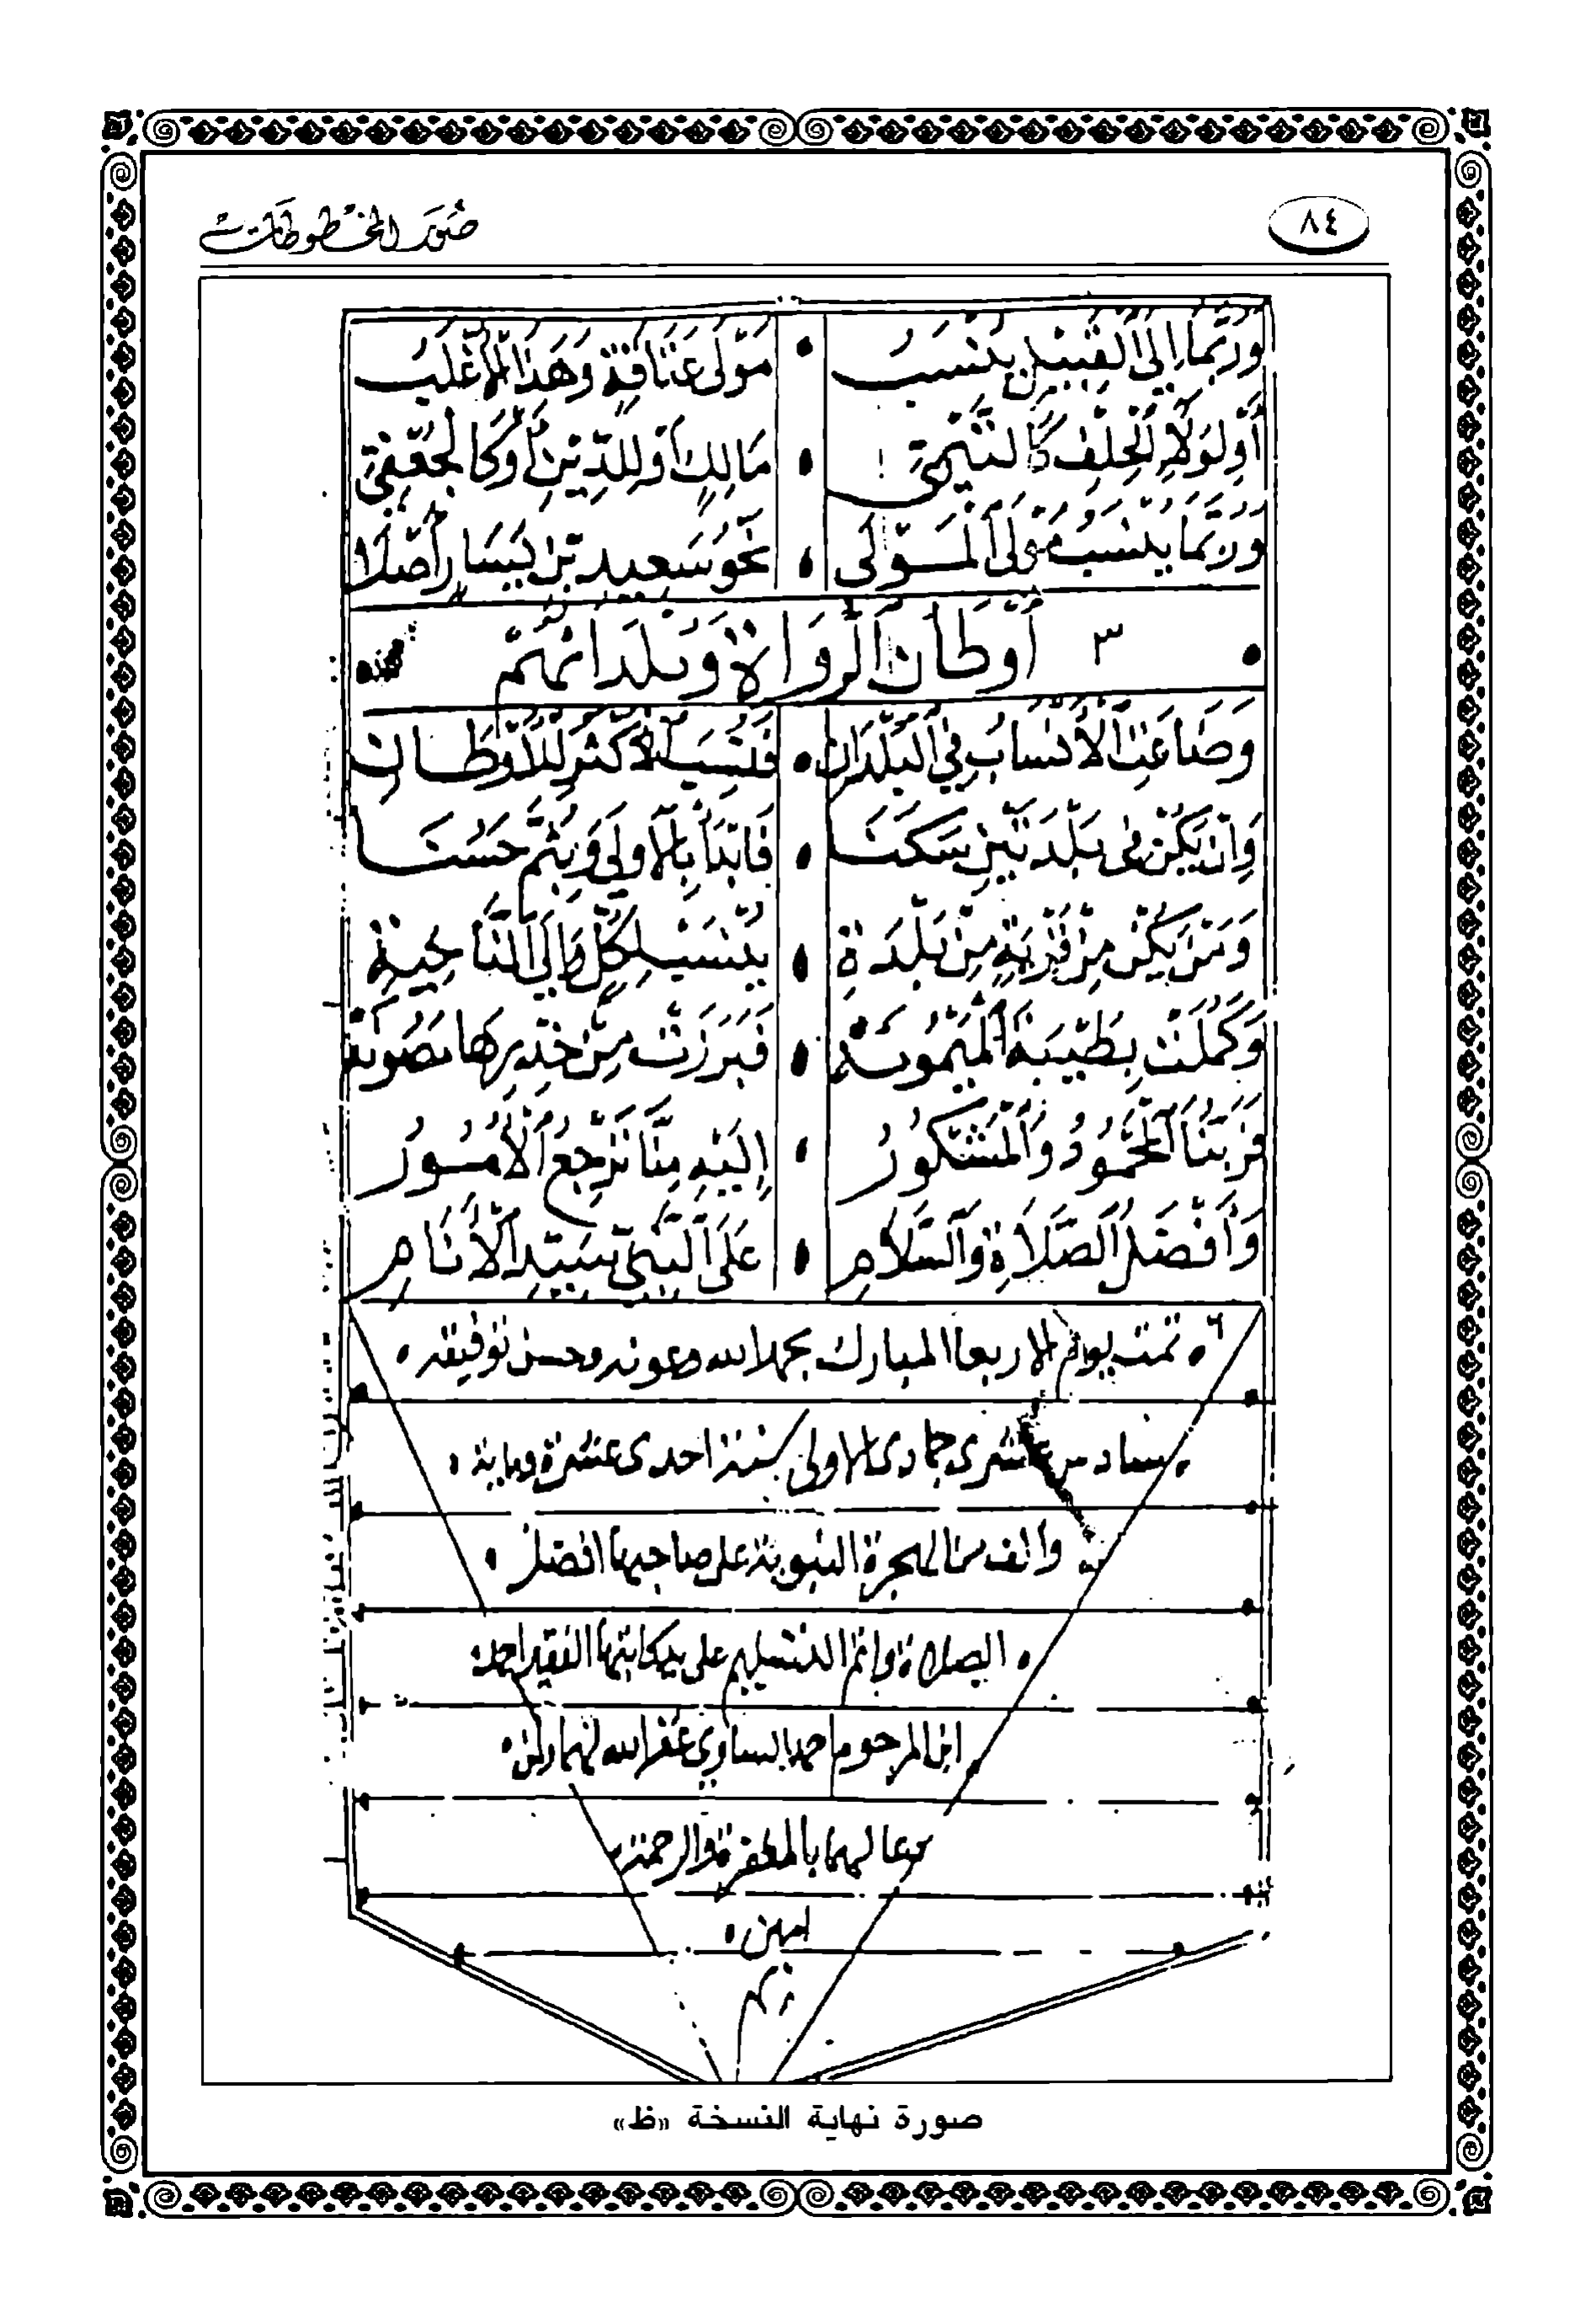 ٨٤
صُوَر المخطوطات
وَرُبَّمَا إِلَى الْقَبِيلِ يُنْسَبُ • مَوْلَى عَتَاقَةٍ وَهَذَا الْأَغْلَبُ
أَوْ لِوَلَاءِ الْحِلْفِ كَالتَّيْمِيِّ • مَالِكٍ أَوْ لِلدِّينِ أَوْ كَالْجُعْفِيِّ
وَرُبَّمَا يُنْسَبُ مَوْلَى الْمَوْلَى • نَحْوُ سَعِيدِ بْنِ يَسَارٍ أَصْلَا
أَوْطَانُ الرُّوَاةِ وَبُلْدَانُهُمْ
وَضَاعَتِ الْأَنْسَابُ فِي الْبُلْدَانِ • فَنُسِبَ الْأَكْثَرُ لِلْأَوْطَانِ
وَإِنْ يَكُنْ فِي بَلْدَتَيْنِ سَكَنَا • فَابْدَأْ بِالْأُولَى وَبِثُمَّ حَسُنَا
وَمَنْ يَكُنْ مِنْ قَرْيَةٍ مِنْ بَلْدَةِ • يُنْسَبْ لِكُلٍّ وَإِلَى النَّاحِيَةِ
وَكَمُلَتْ بِطَيْبَةَ الْمَيْمُونَهْ • فَبَرَزَتْ مِنْ خِدْرِهَا مَصُونَهْ
فَرَبُّنَا الْمَحْمُودُ وَالْمَشْكُورُ • إِلَيْهِ مِنَّا تَرْجِعُ الْأُمُورُ
وَأَفْضَلُ الصَّلَاةِ وَالسَّلَامِ • عَلَى النَّبِيِّ سَيِّدِ الْأَنَامِ
تمت يوم الاربعا المبارك بحمد الله وعونه وحسن توفيقه •
• سادس عشرى جمادى الاولى سنة احدى عشرة وماية •
والف من الهجرة النبوية على صاحبها افضل •
• الصلاة واتم التسليم على يد كاتبها الفقير احمد
ابن المرحوم احمد غفر الله لهما ولمن •
دعا لهما بالمغفرة والرحمة
امين •
صورة نهاية النسخة «ظ»